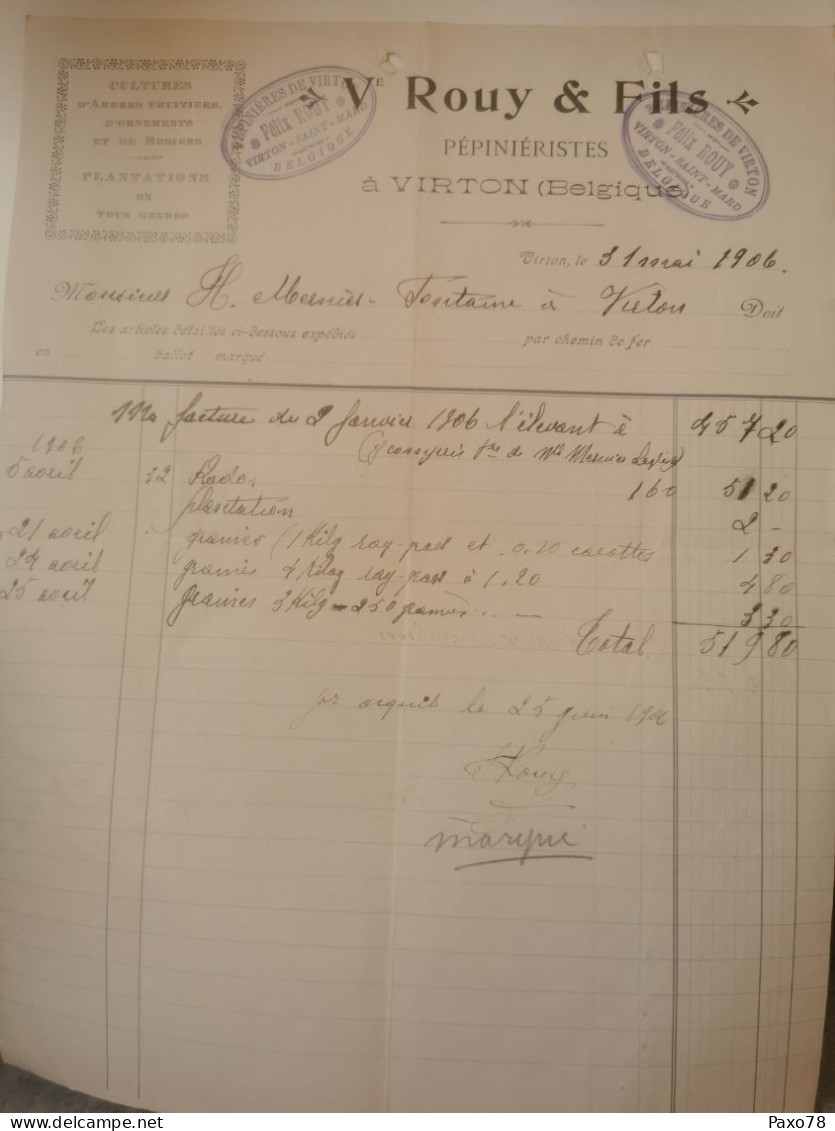 CULTURES
D'ARBRES FRUITIERS,
D'ORNEMENTS
ET DE ROSIERS
PLANTATIONS
EN
TOUS GENRES
PÉPINIÈRES DE VIRTON
Félix ROUY
VIRTON-SAINT-MARD
BELGIQUE
Ve Rouy & Fils
PÉPINIÉRISTES
à VIRTON (Belgique)
PÉPINIÈRES DE VIRTON
Félix ROUY
VIRTON-SAINT-MARD
BELGIQUE
Virton, le 31 mai 1906.
Monsieur H. Mesnier-Fontaine à Virton Doit
Les articles détaillés ci-dessous expédiés par chemin de fer
en ballot marqué
facture du 2 Janvier 1906 s'élevant à 457 20
1906
5 avril 32 160 51 20
plantation 2 -
21 avril graines (1 Kilg ray-pas et 0.10 carottes 1 30
24 avril graines 4 kilog ray-pas à 1.20 4 80
25 avril graines 3 Kilg 250 3 30
Total 519 80
pr acquit le 25 juin 1906
Rouy